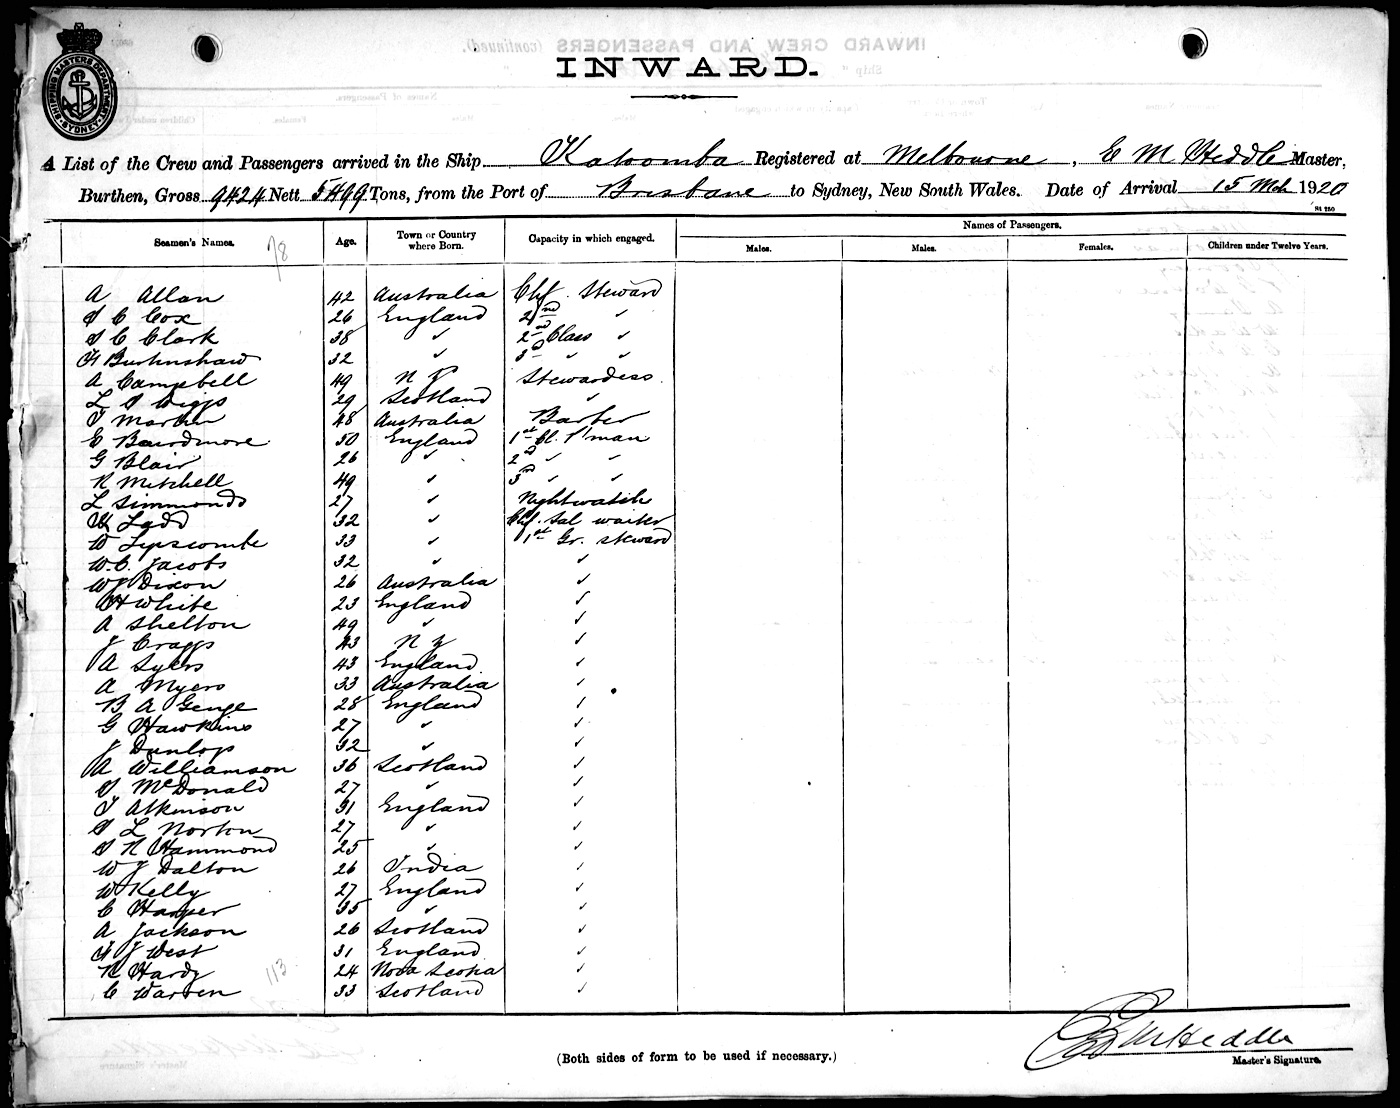 SHIPPING MASTERS DEPARTMENT
SYDNEY
INWARD.
A List of the Crew and Passengers arrived in the Ship Katoomba Registered at Melbourne, E M Heddle Master,
Burthen, Gross 9424 Nett 5499 Tons, from the Port of Brisbane to Sydney, New South Wales. Date of Arrival 15 Mch 1920
St 250
Seamen's Names. Age. Town or Country where Born. Capacity in which engaged. Names of Passengers.
Males. Males. Females. Children under Twelve Years.
78
A Allan 42 Australia Chf. Steward
S C Cox 26 England 2nd "
S C Clark 38 " 2nd Class "
H Burkinshaw 32 " 3rd " "
A Campbell 49 N Z Stewardess
L S Diggs 29 Scotland "
T Martin 48 Australia Barber
E Beardmore 50 England 1st Cl. P'man
G Blair 26 " 2nd " "
R Mitchell 49 " 3rd " "
L Simmonds 27 " Nightwatch
H Ladd 32 " Chf. Sal waiter
W Lipscombe 33 " 1st Gr. steward
W.C. Jacobs 32 " "
W J Dixon 26 Australia "
A H White 23 England "
A Shelton 49 " "
J Craggs 43 N Z "
A Syers 43 England "
A Myers 33 Australia "
B A Genge 28 England "
G Hawkins 27 " "
J Dunlop 32 " "
A Williamson 36 Scotland "
S McDonald 27 " "
T Atkinson 31 England "
S L Norton 27 " "
S R Hammond 25 " "
W J Dalton 26 India "
W Kelly 27 England "
C Harper 35 " "
A Jackson 26 Scotland "
H J West 31 England "
R Hardy 24 Nova Scotia "
C Warren 33 Scotland "
113
E M Heddle
(Both sides of form to be used if necessary.)
Master's Signature.